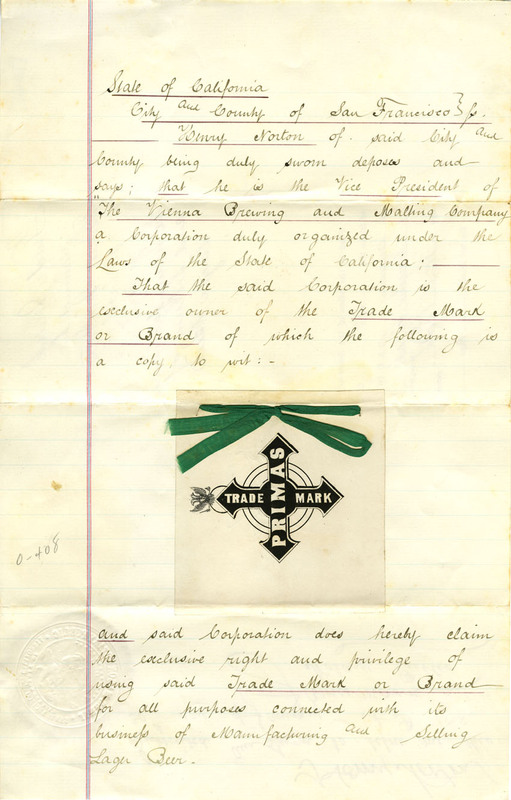 State of California
City and County of San Francisco } ss.
Henry Norton of said City and
County being duly sworn deposes and
says; that he is the Vice President of
"The Vienna Brewing and Malting Company
a Corporation duly organized under the
Laws of the State of California;
That the said Corporation is the
exclusive owner of the Trade Mark
or Brand of which the following is
a copy, to wit: -
PRIMAS
TRADE MARK
0-408
and said Corporation does hereby claim
the exclusive right and privilege of
using said Trade Mark or Brand
for all purposes connected with its
business of Manufacturing and Selling
Lager Beer.